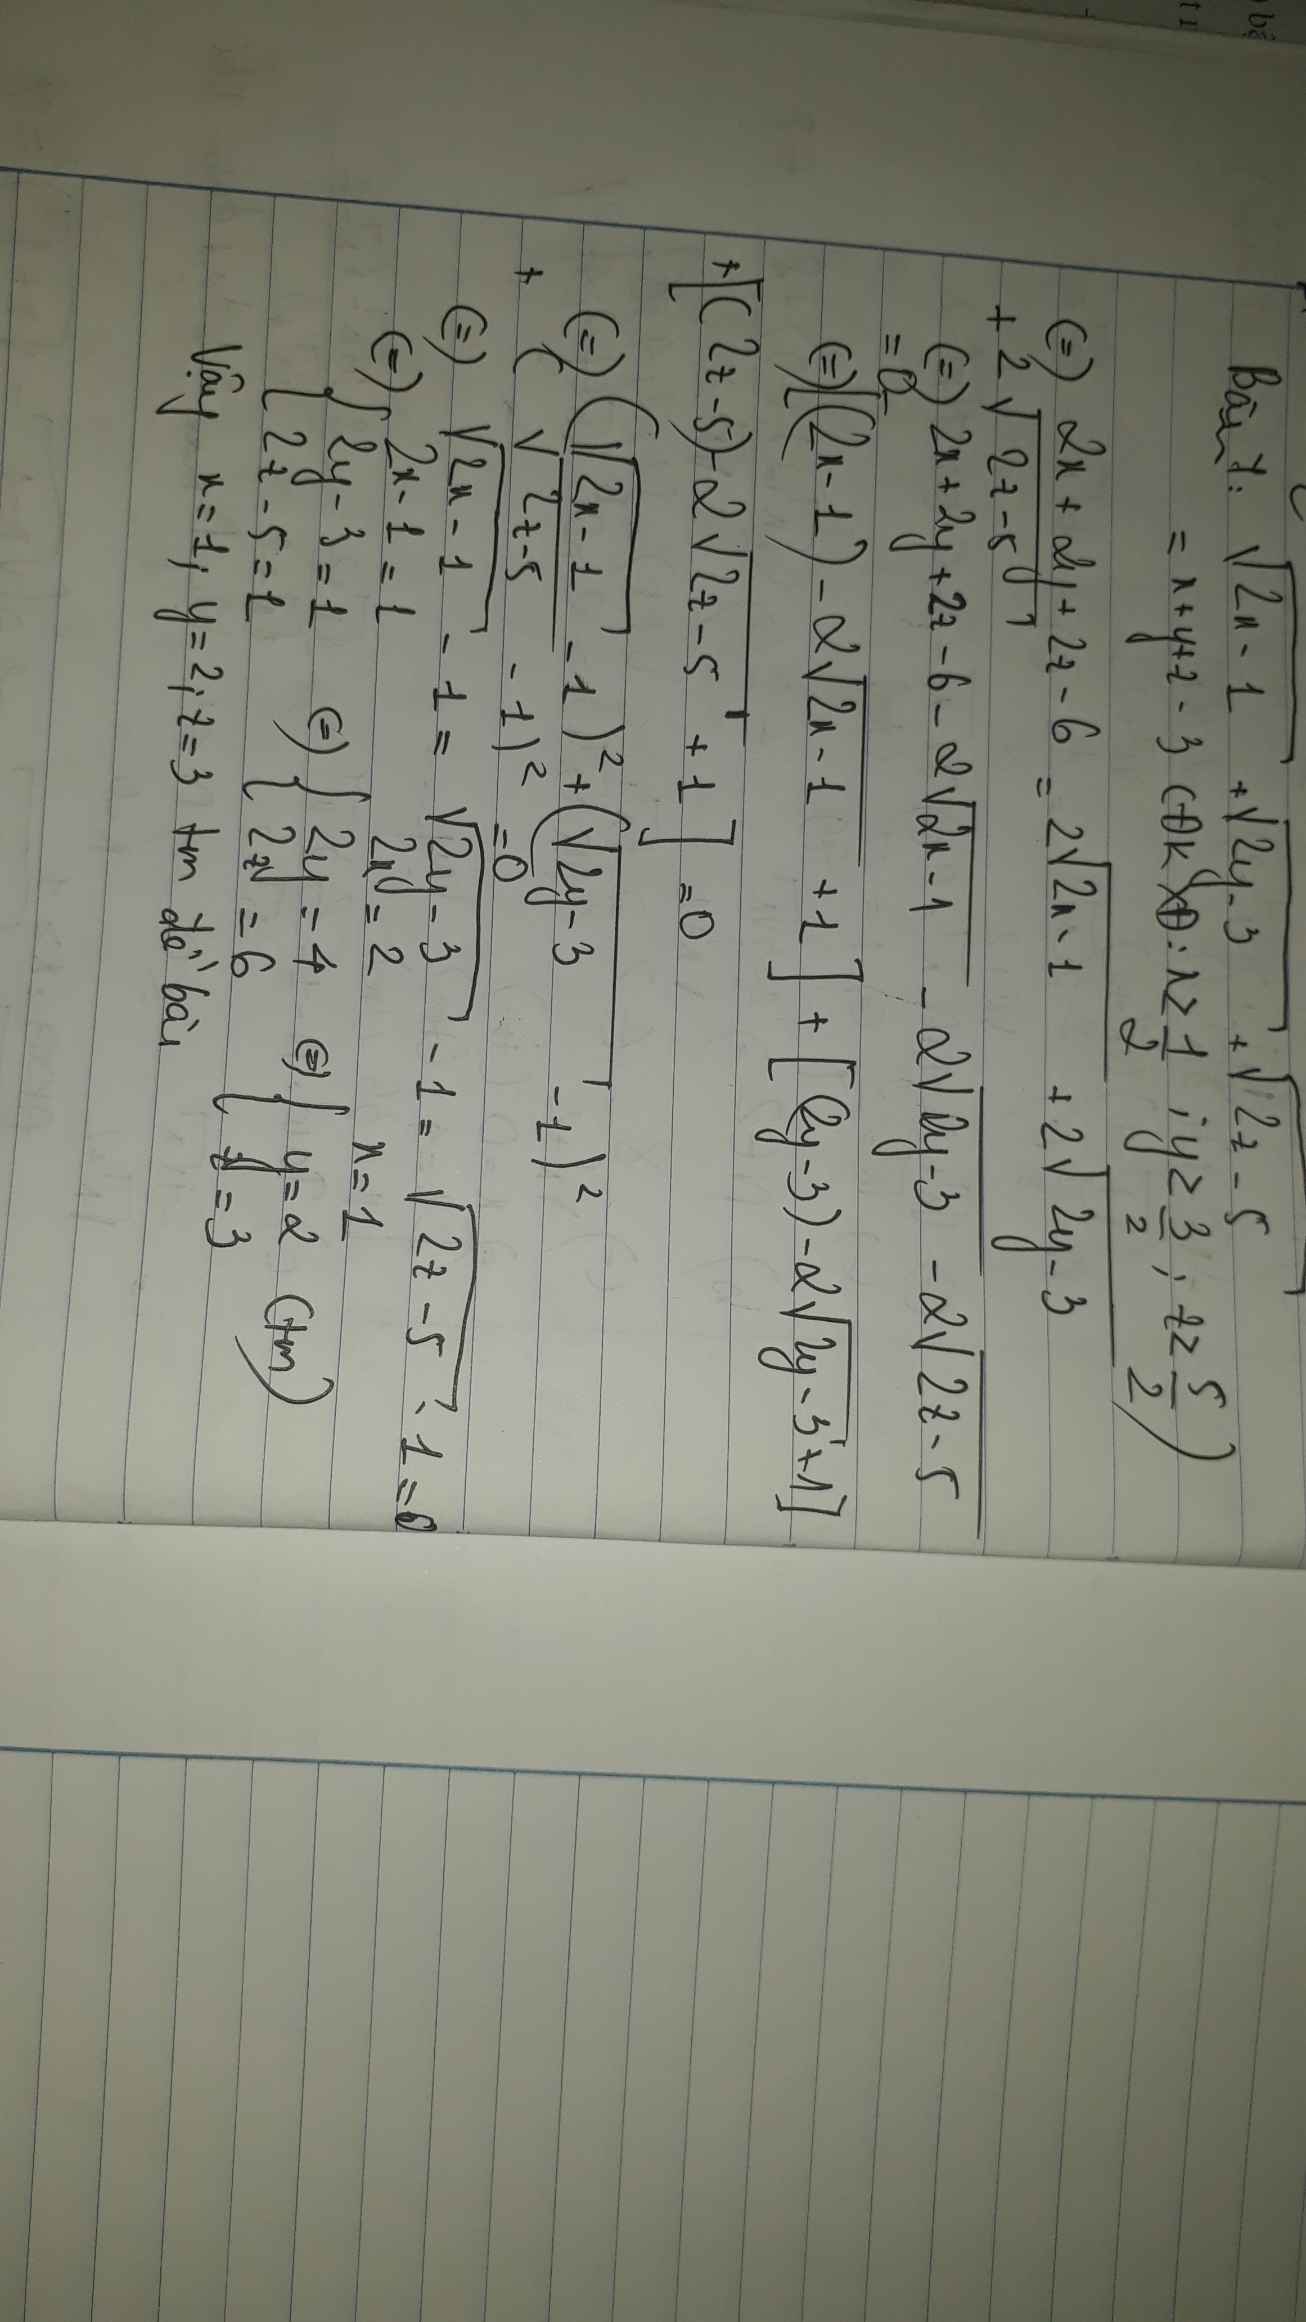 Bài 1: √2x-1 + √2y-3 + √2z-5
= x+y+z-3 (ĐKXĐ: x≥1/2; y≥3/2; z≥5/2)
(=) 2x+2y+2z-6 = 2√2x-1 + 2√2y-3
+ 2√2z-5
(=) 2x+2y+2z-6-2√2x-1 - 2√2y-3 - 2√2z-5
=0
(=) [(2x-1)-2√2x-1 +1] + [(2y-3)-2√2y-3+1]
+[(2z-5)-2√2z-5 +1] =0
(=) (√2x-1 -1)² + (√2y-3 -1)²
+ (√2z-5 -1)² =0
(=) √2x-1 -1 = √2y-3 -1 = √2z-5 -1=0
(=) { 2x-1=1 2x=2 x=1
2y-3=1 (=) { 2y=4 (=) { y=2 (tm)
2z-5=1 2z=6 z=3
Vậy x=1; y=2; z=3 tm đề bài